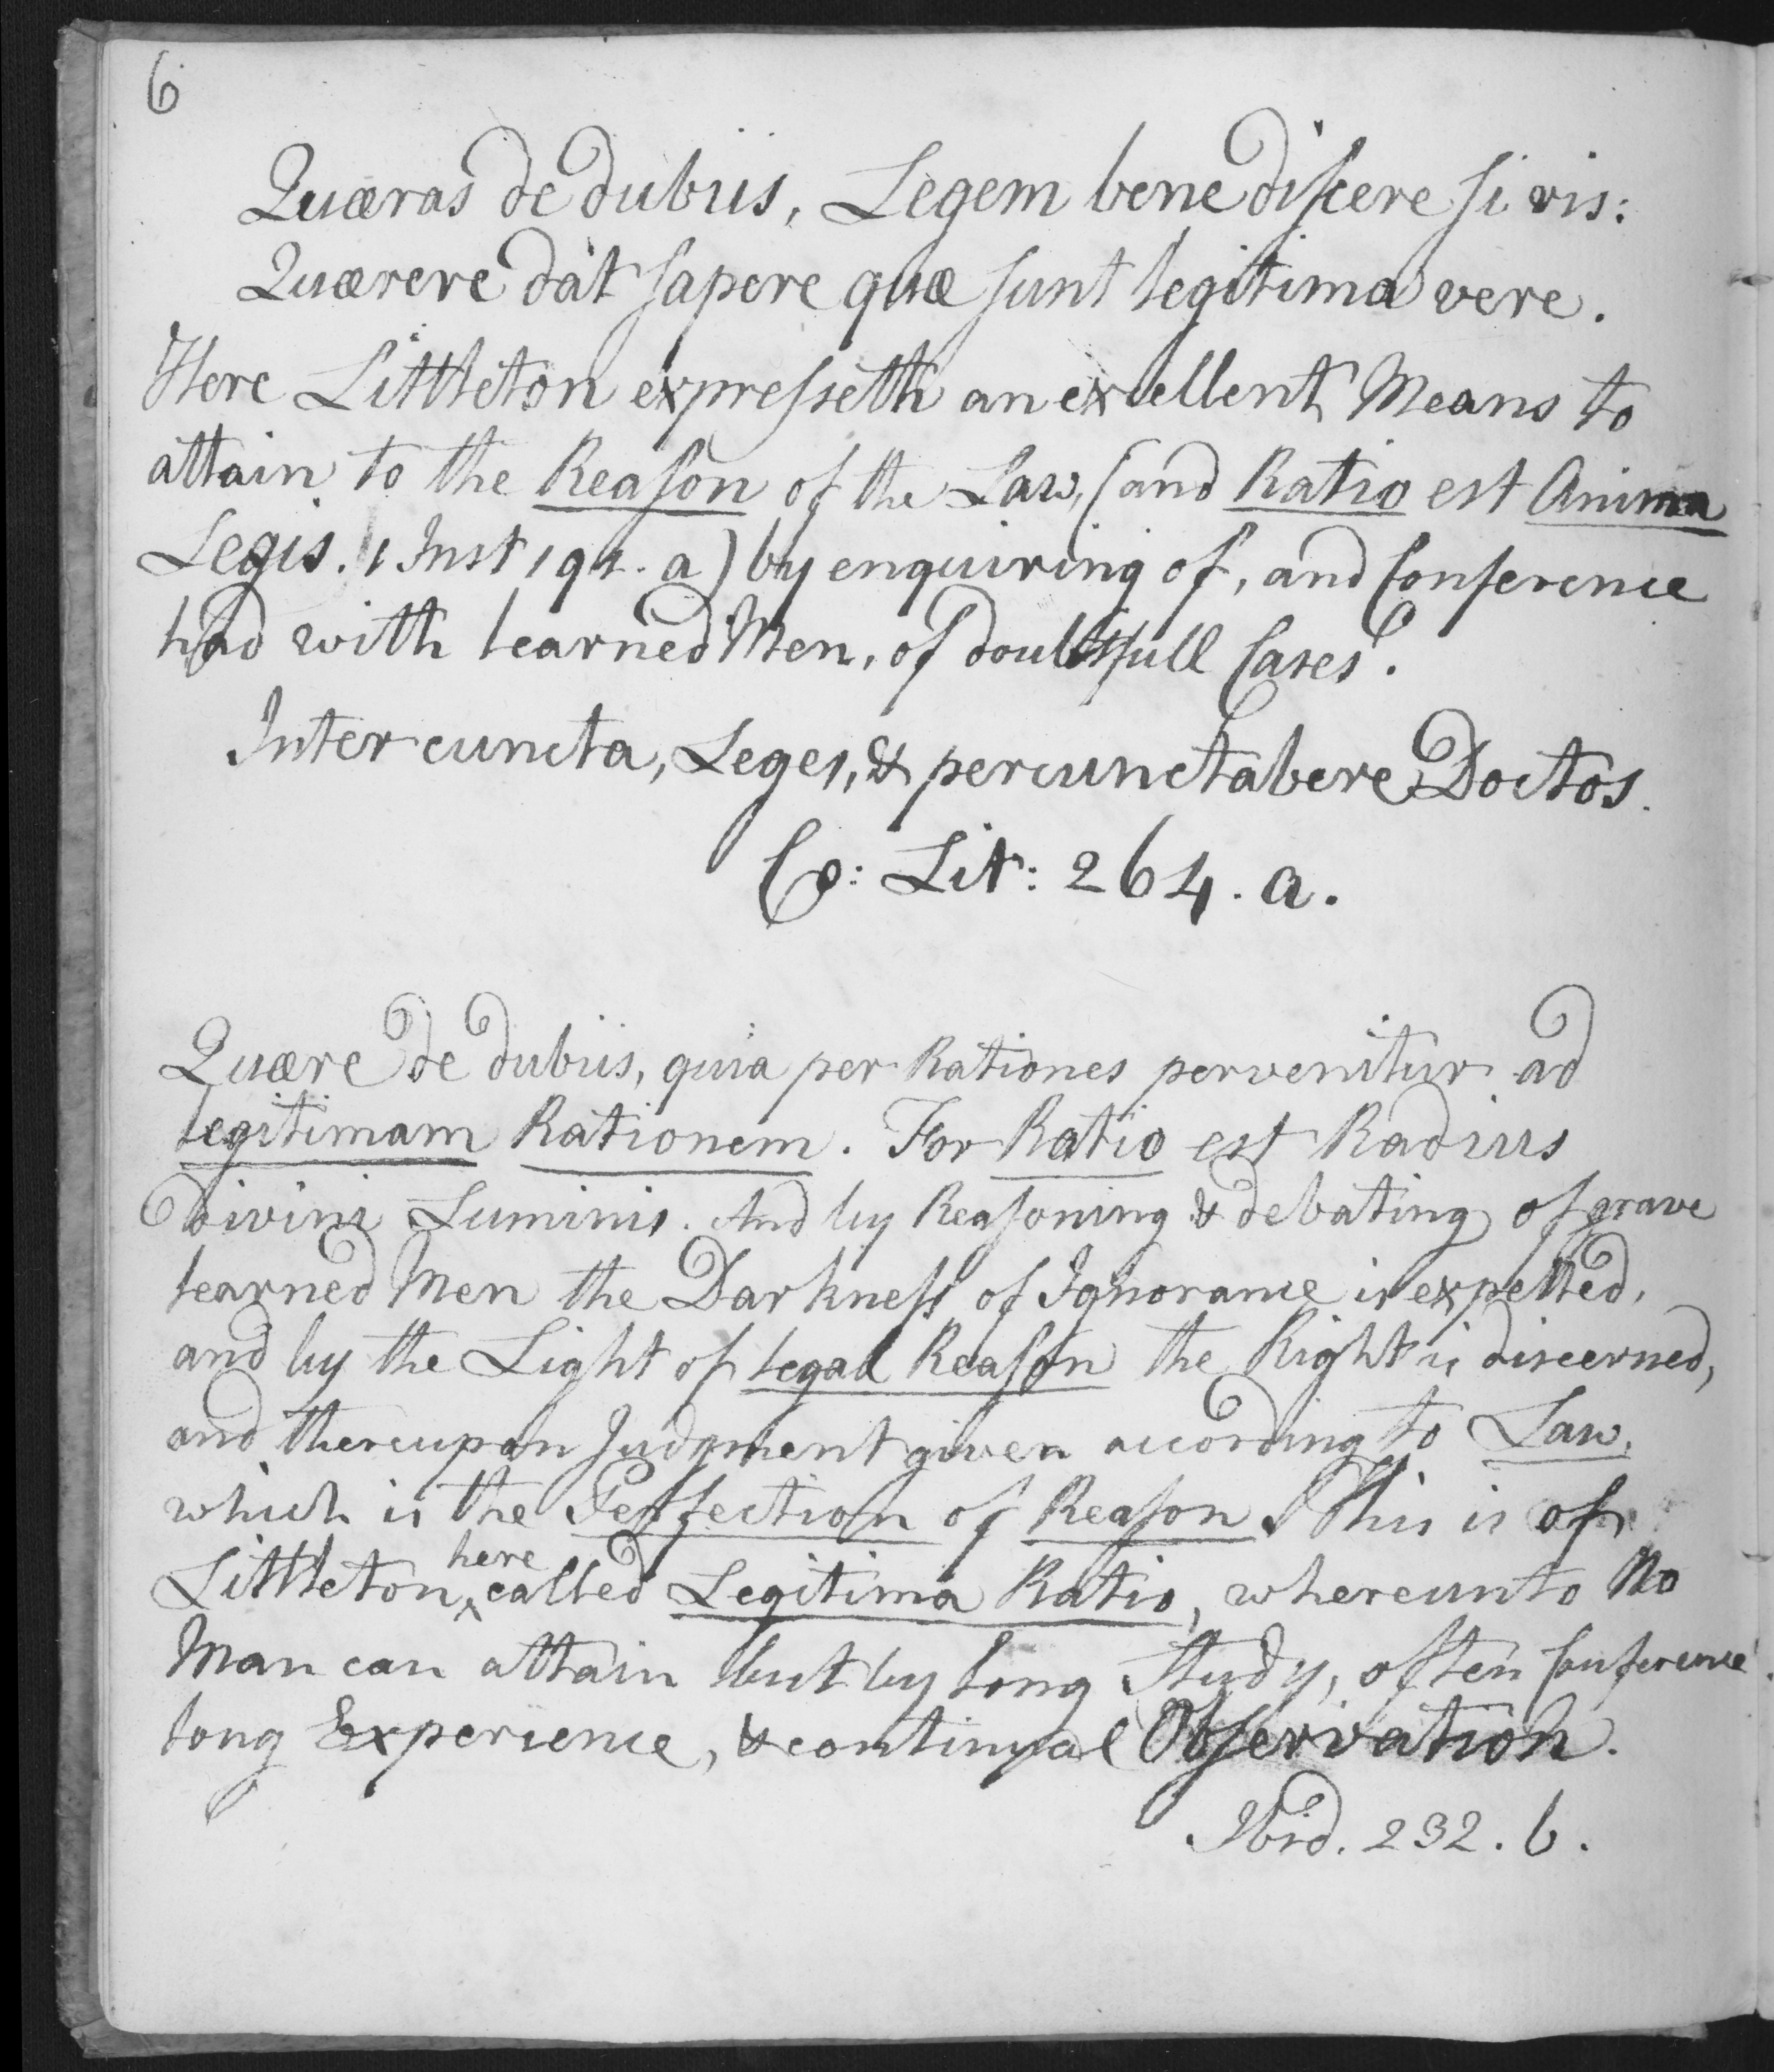 6
Quæras de dubiis, Legem bene discere si vis:
Quærere dat sapere quæ sunt legitima vere.
Here Littleton expresseth an excellent Means to
attain to the Reason of the Law, (and Ratio est Anima
Legis. 1 Inst 191. a) by enquiring of, and Conference
had with learned Men, of doubtfull Cases.
Inter cuncta, Leges, & percunctabere Doctos.
Co: Lit: 264. a.
Quære de dubiis, quia per Rationes pervenitur ad
legitimam Rationem. For Ratio est Radius
divini Luminis. And by Reasoning & debating of grave
learned Men the Darkness of Ignorance is expelled,
and by the Light of legal Reason the Right is discerned,
and thereupon Judgment given according to Law,
which is the Perfection of Reason. This is of
Littleton here called Legitima Ratio, whereunto No
Man can attain but by long Study, often Conference
long Experience, & continual Observation.
Ibid. 232. b.